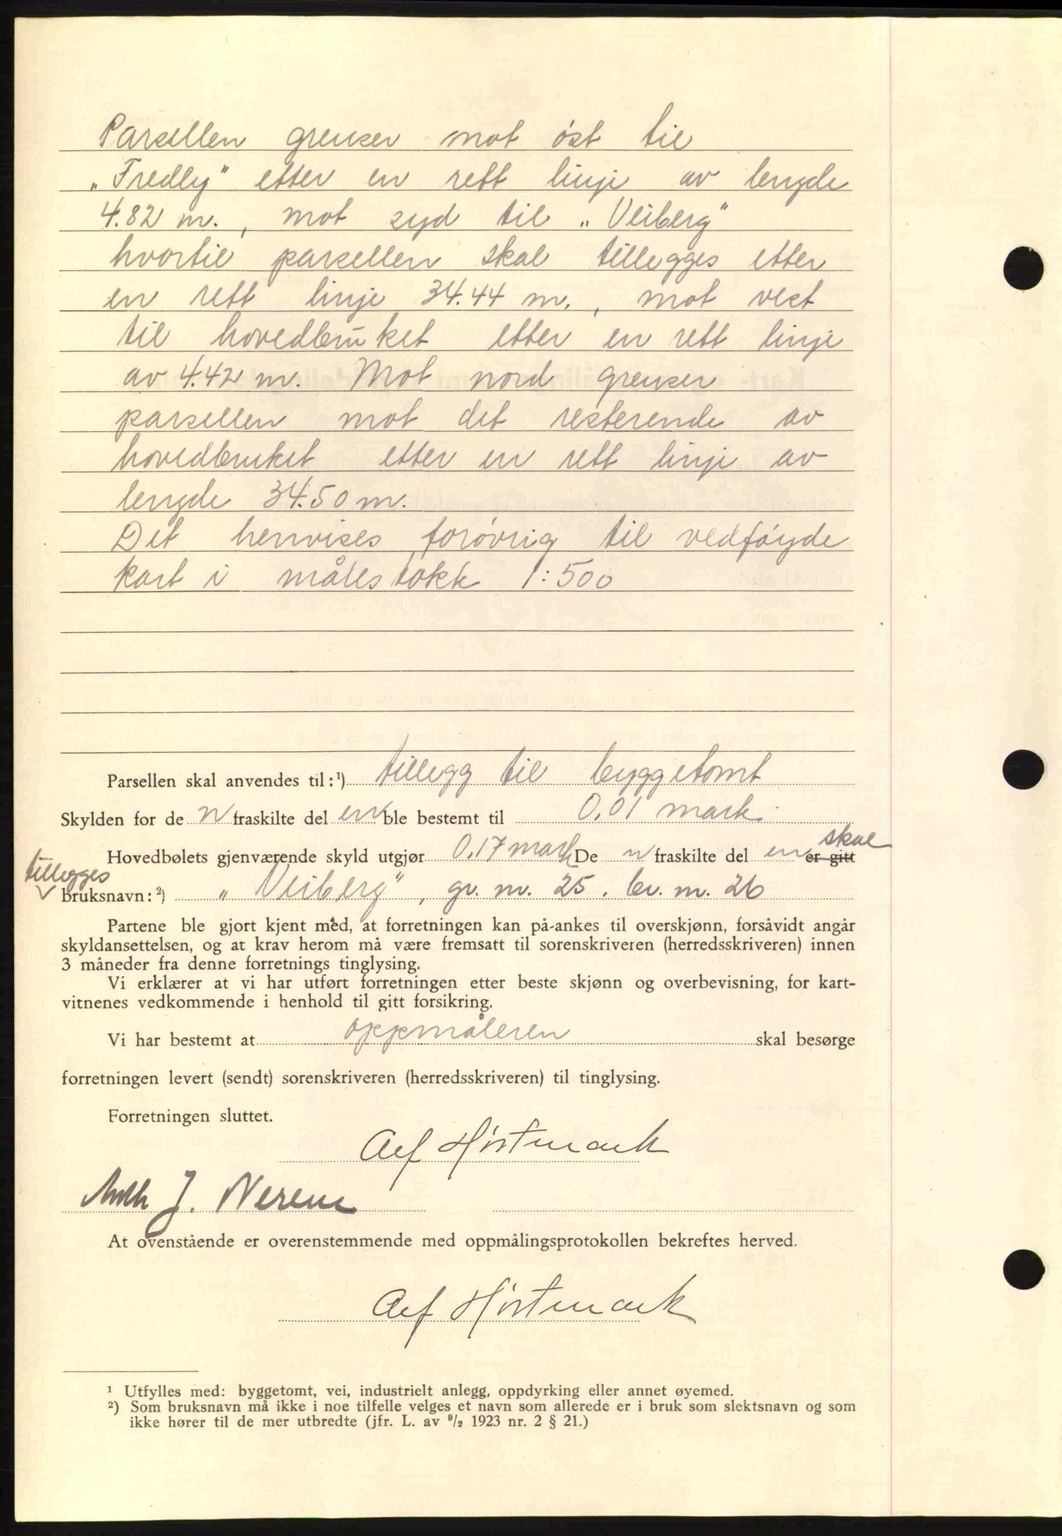 Parsellen grenser mot öst til
„Fredly" etter en rett linje av lengde
4.82 m., mot syd til „Veiberg"
hvortil parsellen skal tillegges etter
en rett linje 34.44 m., mot vest
til hovedbruket etter en rett linje
av 4.42 m. Mot nord grenser
parsellen mot det resterende av
hovedbruket etter en rett linje av
lengde 34.50 m.
Det henvises forövrig til vedföyde
kart i målestokk 1:500
Parsellen skal anvendes til:¹) tillegg til byggetomt
Skylden for de n fraskilte del en ble bestemt til 0,01 mark.
Hovedbølets gjenværende skyld utgjør 0,17 mark De n fraskilte del en er gitt skal
tillegges
bruksnavn:²) „Veiberg", gr. nr. 25. br. nr. 26
Partene ble gjort kjent med, at forretningen kan på-ankes til overskjønn, forsåvidt angår
skyldansettelsen, og at krav herom må være fremsatt til sorenskriveren (herredsskriveren) innen
3 måneder fra denne forretnings tinglysing.
Vi erklærer at vi har utført forretningen etter beste skjønn og overbevisning, for kart-
vitnenes vedkommende i henhold til gitt forsikring.
Vi har bestemt at oppmåleren skal besørge
forretningen levert (sendt) sorenskriveren (herredsskriveren) til tinglysing.
Forretningen sluttet.
Alf Hörstmark
J. Nerem
At ovenstående er overenstemmende med oppmålingsprotokollen bekreftes herved.
Alf Hörstmark
¹ Utfylles med: byggetomt, vei, industrielt anlegg, oppdyrking eller annet øyemed.
²) Som bruksnavn må ikke i noe tilfelle velges et navn som allerede er i bruk som slektsnavn og som
ikke hører til de mer utbredte (jfr. L. av ⁹/₂ 1923 nr. 2 § 21.)